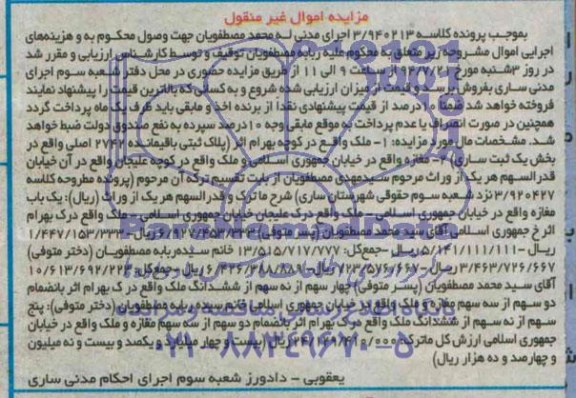 مزایده اموال غیر منقول
بموجب پرونده کلاسه ۳/۹۴۰۲۱۳ اجرای مدنی له محمد مصطفویان جهت وصول محکوم به و هزینه‌های
اجرایی اموال مشروحه زیر متعلق به محکوم علیه ربابه مصطفویان توقیف و توسط کارشناس ارزیابی و مقرر شد
در روز ۳شنبه مورخ ساعت ۹ الی ۱۱ از طریق مزایده حضوری در محل دفتر شعبه سوم اجرای
مدنی ساری بفروش برسد و قیمت از میزان ارزیابی شده شروع و به کسانی که بالاترین قیمت را پیشنهاد نمایند
فروخته خواهد شد ضمنا ۱۰درصد از قیمت پیشنهادی نقدا از برنده اخذ و مابقی باید ظرف یک ماه پرداخت گردد
همچنین در صورت انصراف یا عدم پرداخت به موقع مابقی وجه ۱۰درصد سپرده به نفع صندوق دولت ضبط خواهد
شد. مشخصات مال مورد مزایده: ۱- ملک واقع در کوچه بهرام اثر (پلاک ثبتی باقیمانده ۲۷۴۲ اصلی واقع در
بخش یک ثبت ساری) ۲- مغازه واقع در خیابان جمهوری اسلامی و ملک واقع در کوچه علیجان واقع در آن خیابان
قدرالسهم هر یک از وراث مرحوم سیدمهدی مصطفویان از بابت تقسیم ترکه آن مرحوم (پرونده مطروحه کلاسه
۳/۹۲۰۴۲۷ نزد شعبه سوم حقوقی شهرستان ساری) شرح ماترک و قدرالسهم هر یک از وراث (ریال): یک باب
مغازه واقع در خیابان جمهوری اسلامی - ملک واقع درک علیجان خیابان جمهوری اسلامی - ملک واقع درک بهرام
اثر خ جمهوری اسلامی آقای سید محمد مصطفویان (پسر متوفی) ریال- ۱/۴۴۷/۱۵۳/۳۳۳
ریال -۵/۱۴۱/۱۱۱/۱۱۱ریال -جمع‌کل: ۱۳/۵۱۵/۷۱۷/۷۷۷ خانم سیده‌ربابه مصطفویان (دختر متوفی)
۳/۴۶۳/۷۲۶/۶۶۷ ریال- ۷۲۳/۵۷۶/۶۶۷ ریال- ۶/۴۲۶/۳۸۸/۸۸۹ ریال- جمع‌کل: ۱۰/۶۱۳/۶۹۲/۲۲۳
آقای سید محمد مصطفویان (پسر متوفی) چهار سهم از نه سهم از ششدانگ ملک واقع در ک بهرام اثر بانضمام
دو سهم از سه سهم مغازه و ملک واقع در خیابان جمهوری اسلامی خانم سیده ربابه مصطفویان (دختر متوفی): پنج
سهم از نه سهم از ششدانگ ملک واقع درک بهرام اثر بانضمام دو سهم از سه سهم مغازه و ملک واقع در خیابان
جمهوری اسلامی ارزش کل ماترک: ۲۴/۱۲۹/۴۱۰/۰۰۰ریال (بیست و چهار میلیارد و یکصد و بیست و نه میلیون
و چهارصد و ده هزار ریال)
یعقوبی - دادورز شعبه سوم اجرای احکام مدنی ساری
۰۲۱-۸۸۳۴۹۶۷۰-۵